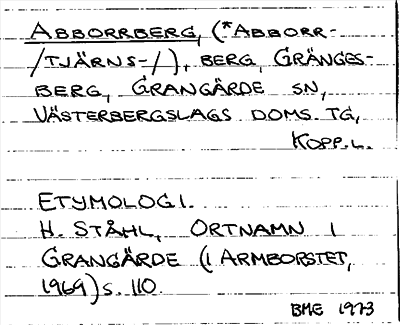 ABBORRBERG, (*ABBORR-
/TJÄRNS-/), BERG, GRÄNGES-
BERG, GRANGÄRDE SN,
VÄSTERBERGSLAGS DOMS. TG,
KOPP. L.
ETYMOLOGI.
H. STÅHL, ORTNAMN I
GRANGÄRDE (I ARMBORSTET,
1969) S. 110.
BME 1973